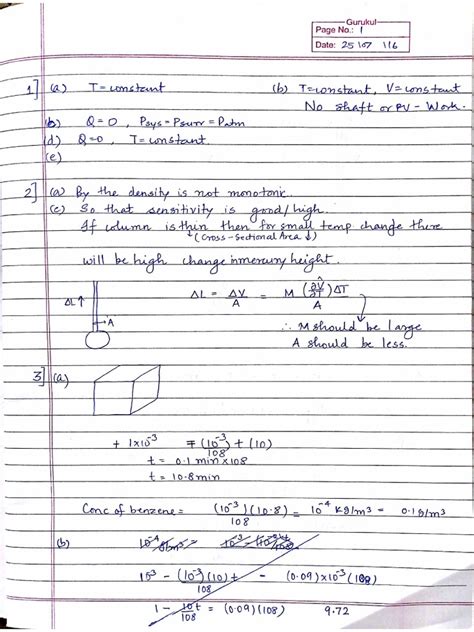 Gurukul
Page No.: 1
Date: 25/07/16
1] (a) T = constant (b) T = constant, V = constant
No shaft or PV - Work.
(b) Q = 0, Psys = Psurr = Patm
(d) Q = 0, T = constant.
(e)
2] (a) By the density is not monotonic.
(c) So that sensitivity is good/high.
If column is thin then for small temp change there
↳ (Cross-Sectional Area ↓)
will be high change in mercury height.
ΔL ↑ ΔL = ΔV/A = M (∂V̂/∂T) ΔT/A
A
∴ M should be large
A should be less.
3] (a)
+ 1×10⁻³ = (10⁻³)/108 + (10)
t = 0.1 min × 108
t = 10.8 min
Conc of benzene = (10⁻³)(10.8)/108 = 10⁻⁴ kg/m³ = 0.1 g/m³
(b)
10³ - (10⁻³)(10)t/108 - (0.09)×10⁻³(108)
1 - 10t/108 = (0.09)(108) 9.72